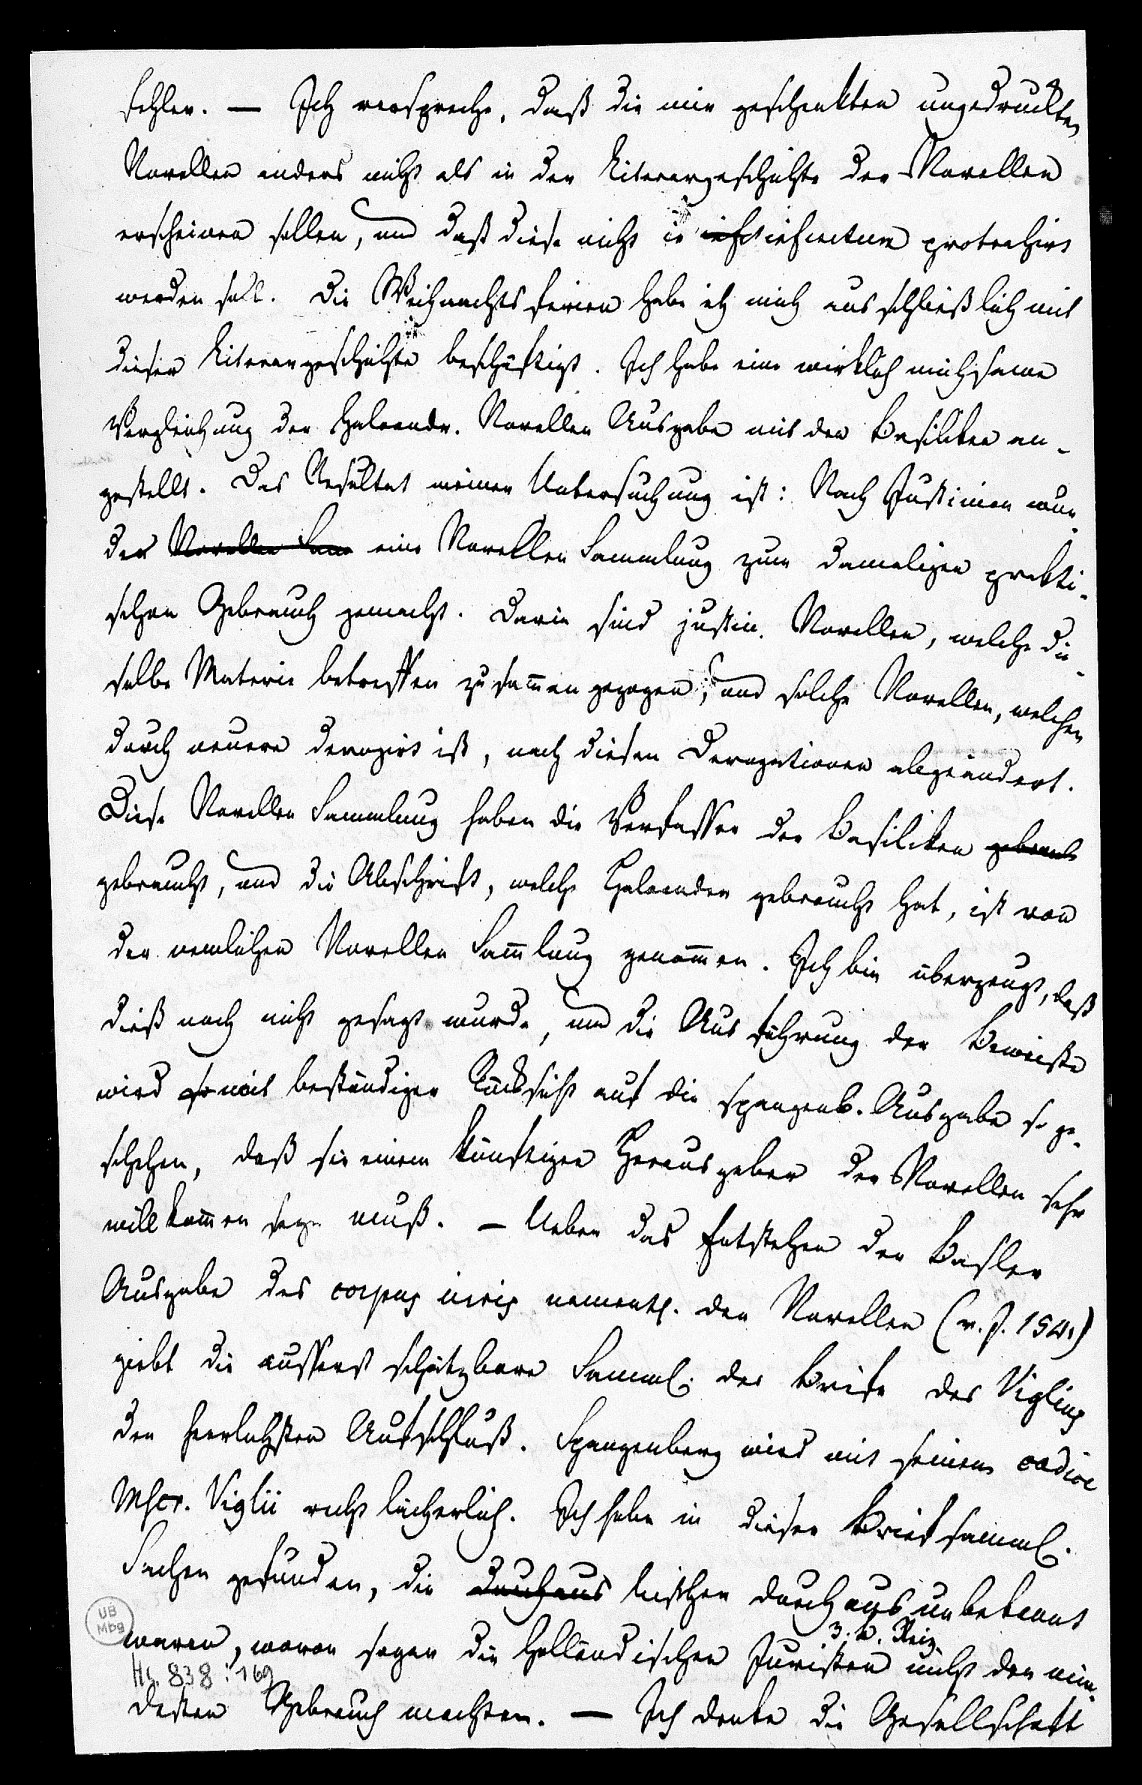 fehler. — Ich verspreche, daß die mir geschenkten ungedruckten
Novellen anders nicht als in der Literargeschichte der Novellen
erscheinen sollen, und daß diese nicht in infinitum protrahirt
werden soll. Die Weihnachtsferien habe ich mich ausschließlich mit
dieser Literargeschichte beschäftigt. Ich habe eine wirklich mühsame
Vergleichung der Haloandr. Novellen Ausgabe mit den Basiliken an-
gestellt. Das Resultat meiner Untersuchung ist: Nach Justinian wur-
de Novellen Sam eine Novellen Sammlung zum damaligen prakti-
schen Gebrauch gemacht. Darin sind justin. Novellen, welche die-
selbe Materie betreffen zusammengezogen, und solche Novellen, welchen
durch neuere derogirt ist, nach diesen Derogationen abgeändert.
Diese Novellen Sammlung haben die Verfasser der Basiliken gebrauch
gebraucht, und die Abschrift, welche Haloander gebraucht hat, ist von
der nemlichen Novellen Sammlung genommen. Ich bin überzeugt, daß
dieß noch nicht gesagt wurde, und die Ausführung der Beweise
wird so mit beständiger Rücksicht auf die spangenb. Ausgabe so ge-
schehen, daß sie einem künftigen Herausgeber der Novellen sehr
willkommen seyn muß. — Ueber das Entstehen der Basler
Ausgabe des corpus iuris namentl. der Novellen (v. J. 1541)
giebt die ausserst schätzbare Samml. der Briefe des Viglius
den herrlichsten Aufschluß. Spangenberg wird mit seinem codice
Mscr. Viglii recht lächerlich. Ich habe in dieser Briefsamml.
Sachen gefunden, die durchaus bisher durchaus unbekannt
z. B. Reiz.
waren, wovon sogar die holländischen Juristen nicht den min-
desten Gebrauch machten. — Ich denke die Gesellschaft
UB
Mbg
Hs. 838:169